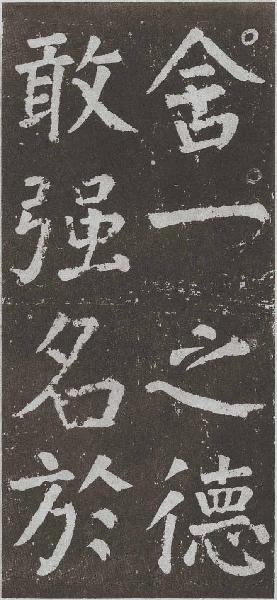 舍一之德
敢强名於